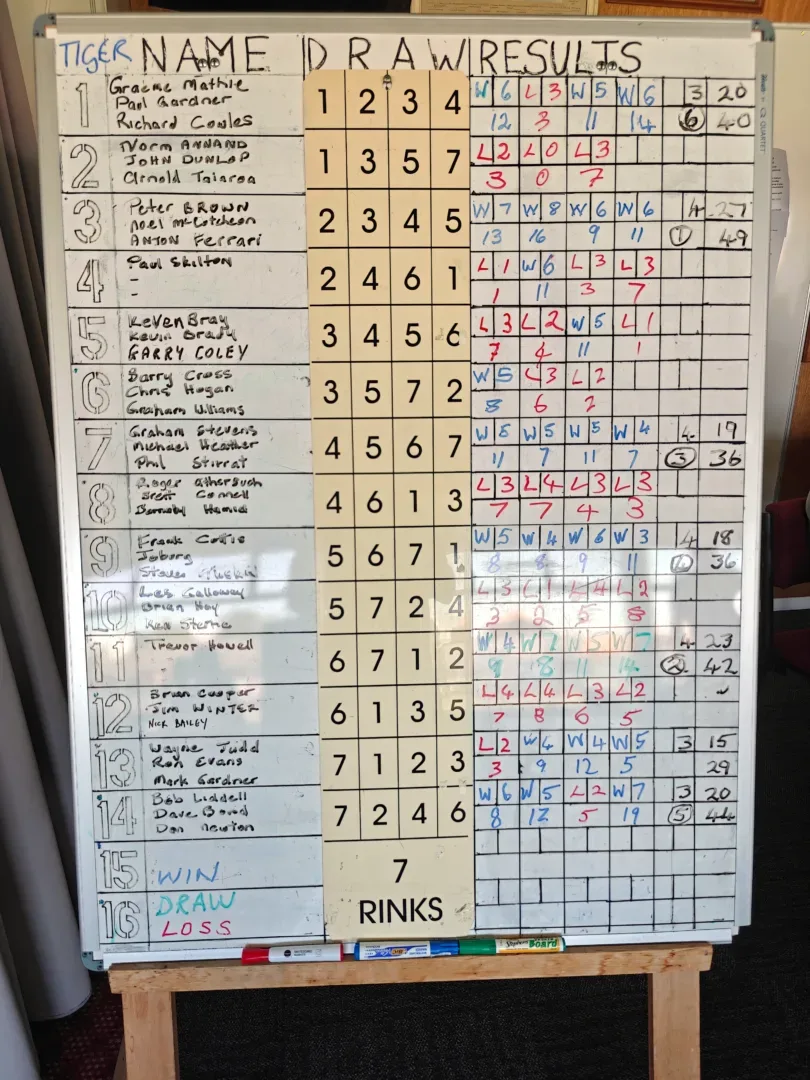 TIGER NAME DRAW RESULTS
1 Graeme Mathie 1 2 3 4 W 6 L 3 W 5 W 6 3 20
Paul Gardner
Richard Cowles 12 3 11 14 6 40
2 Norm ANNAND 1 3 5 7 L 2 L 0 L 3
JOHN DUNLOP
Arnold Taiaroa 3 0 7
3 Peter BROWN 2 3 4 5 W 7 W 8 W 6 W 6 4 27
Noel McCutcheon
ANTON Ferrari 13 16 9 11 1 49
4 Paul Skilton 2 4 6 1 L 1 W 6 L 3 L 3
- 1 11 3 7
-
5 Keven Bray 3 4 5 6 L 3 L 2 W 5 L 1
Kevin Brady
GARRY COLEY 7 4 11 1
6 Barry Cross 3 5 7 2 W 5 L 3 L 2
Chris Hogan
Graham Williams 8 6 2
7 Graham Stevens 4 5 6 7 W 5 W 5 W 5 W 4 4 19
Michael Heather
Phil Stirrat 11 7 11 7 3 36
8 Roger 4 6 1 3 L 3 L 4 L 3 L 3
Brett Connell
Hamid 7 7 4 3
9 Frank 5 6 7 1 W 5 W 4 W 6 W 3 4 18
Joburg
Steve 8 8 9 11 36
10 Les Galloway 5 7 2 4 L 3 L 1 L 4 L 2
Brian Hoy
Ken 3 2 5 8
11 Trevor Howell 6 7 1 2 W 4 W 7 W 5 W 7 4 23
9 18 11 14 2 42
12 Brian Cooper 6 1 3 5 L 4 L 4 L 3 L 2
JIM WINTER
NICK BAILEY 7 8 6 5
13 Wayne Judd 7 1 2 3 L 2 W 4 W 4 W 5 3 15
Ron Evans
Mark Gardner 3 9 12 5 29
14 Bob Liddell 7 2 4 6 W 6 W 5 L 2 W 7 3 20
Dave Bond
Don Newton 8 12 5 19 5 44
15 WIN 7
16 DRAW RINKS
LOSS